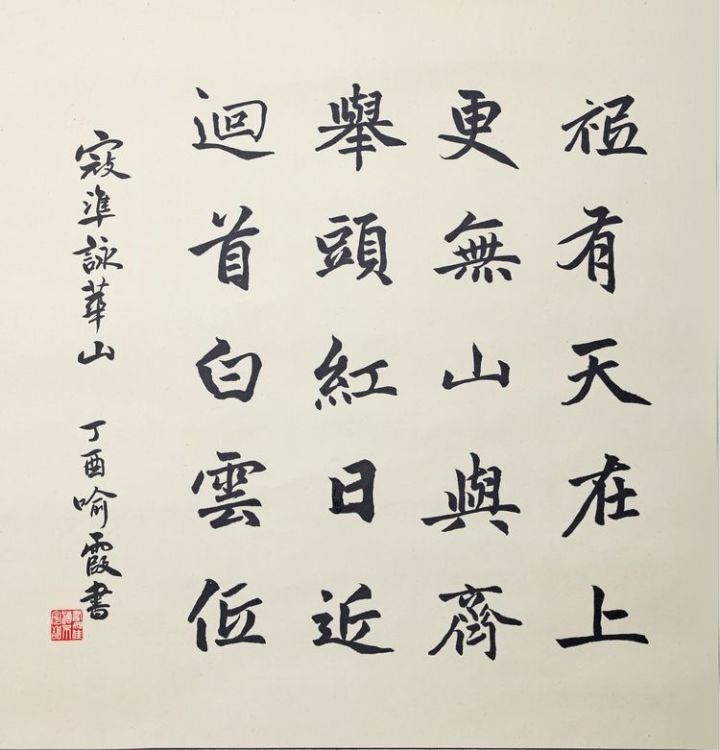 祗有天在上
更無山與齊
舉頭紅日近
迴首白雲低
寇準詠華山 丁酉喻霞書